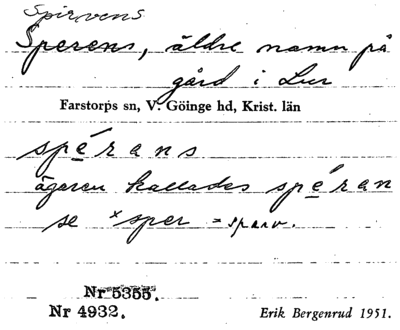 Spirvens
Sperens, äldre namn på
gård i Lur
Farstorps sn, V. Göinge hd, Krist. län
spérans
ägaren kallades spéran
se ˣsper = sparv.
Nr 5355.
Nr 4932.
Erik Bergenrud 1951.